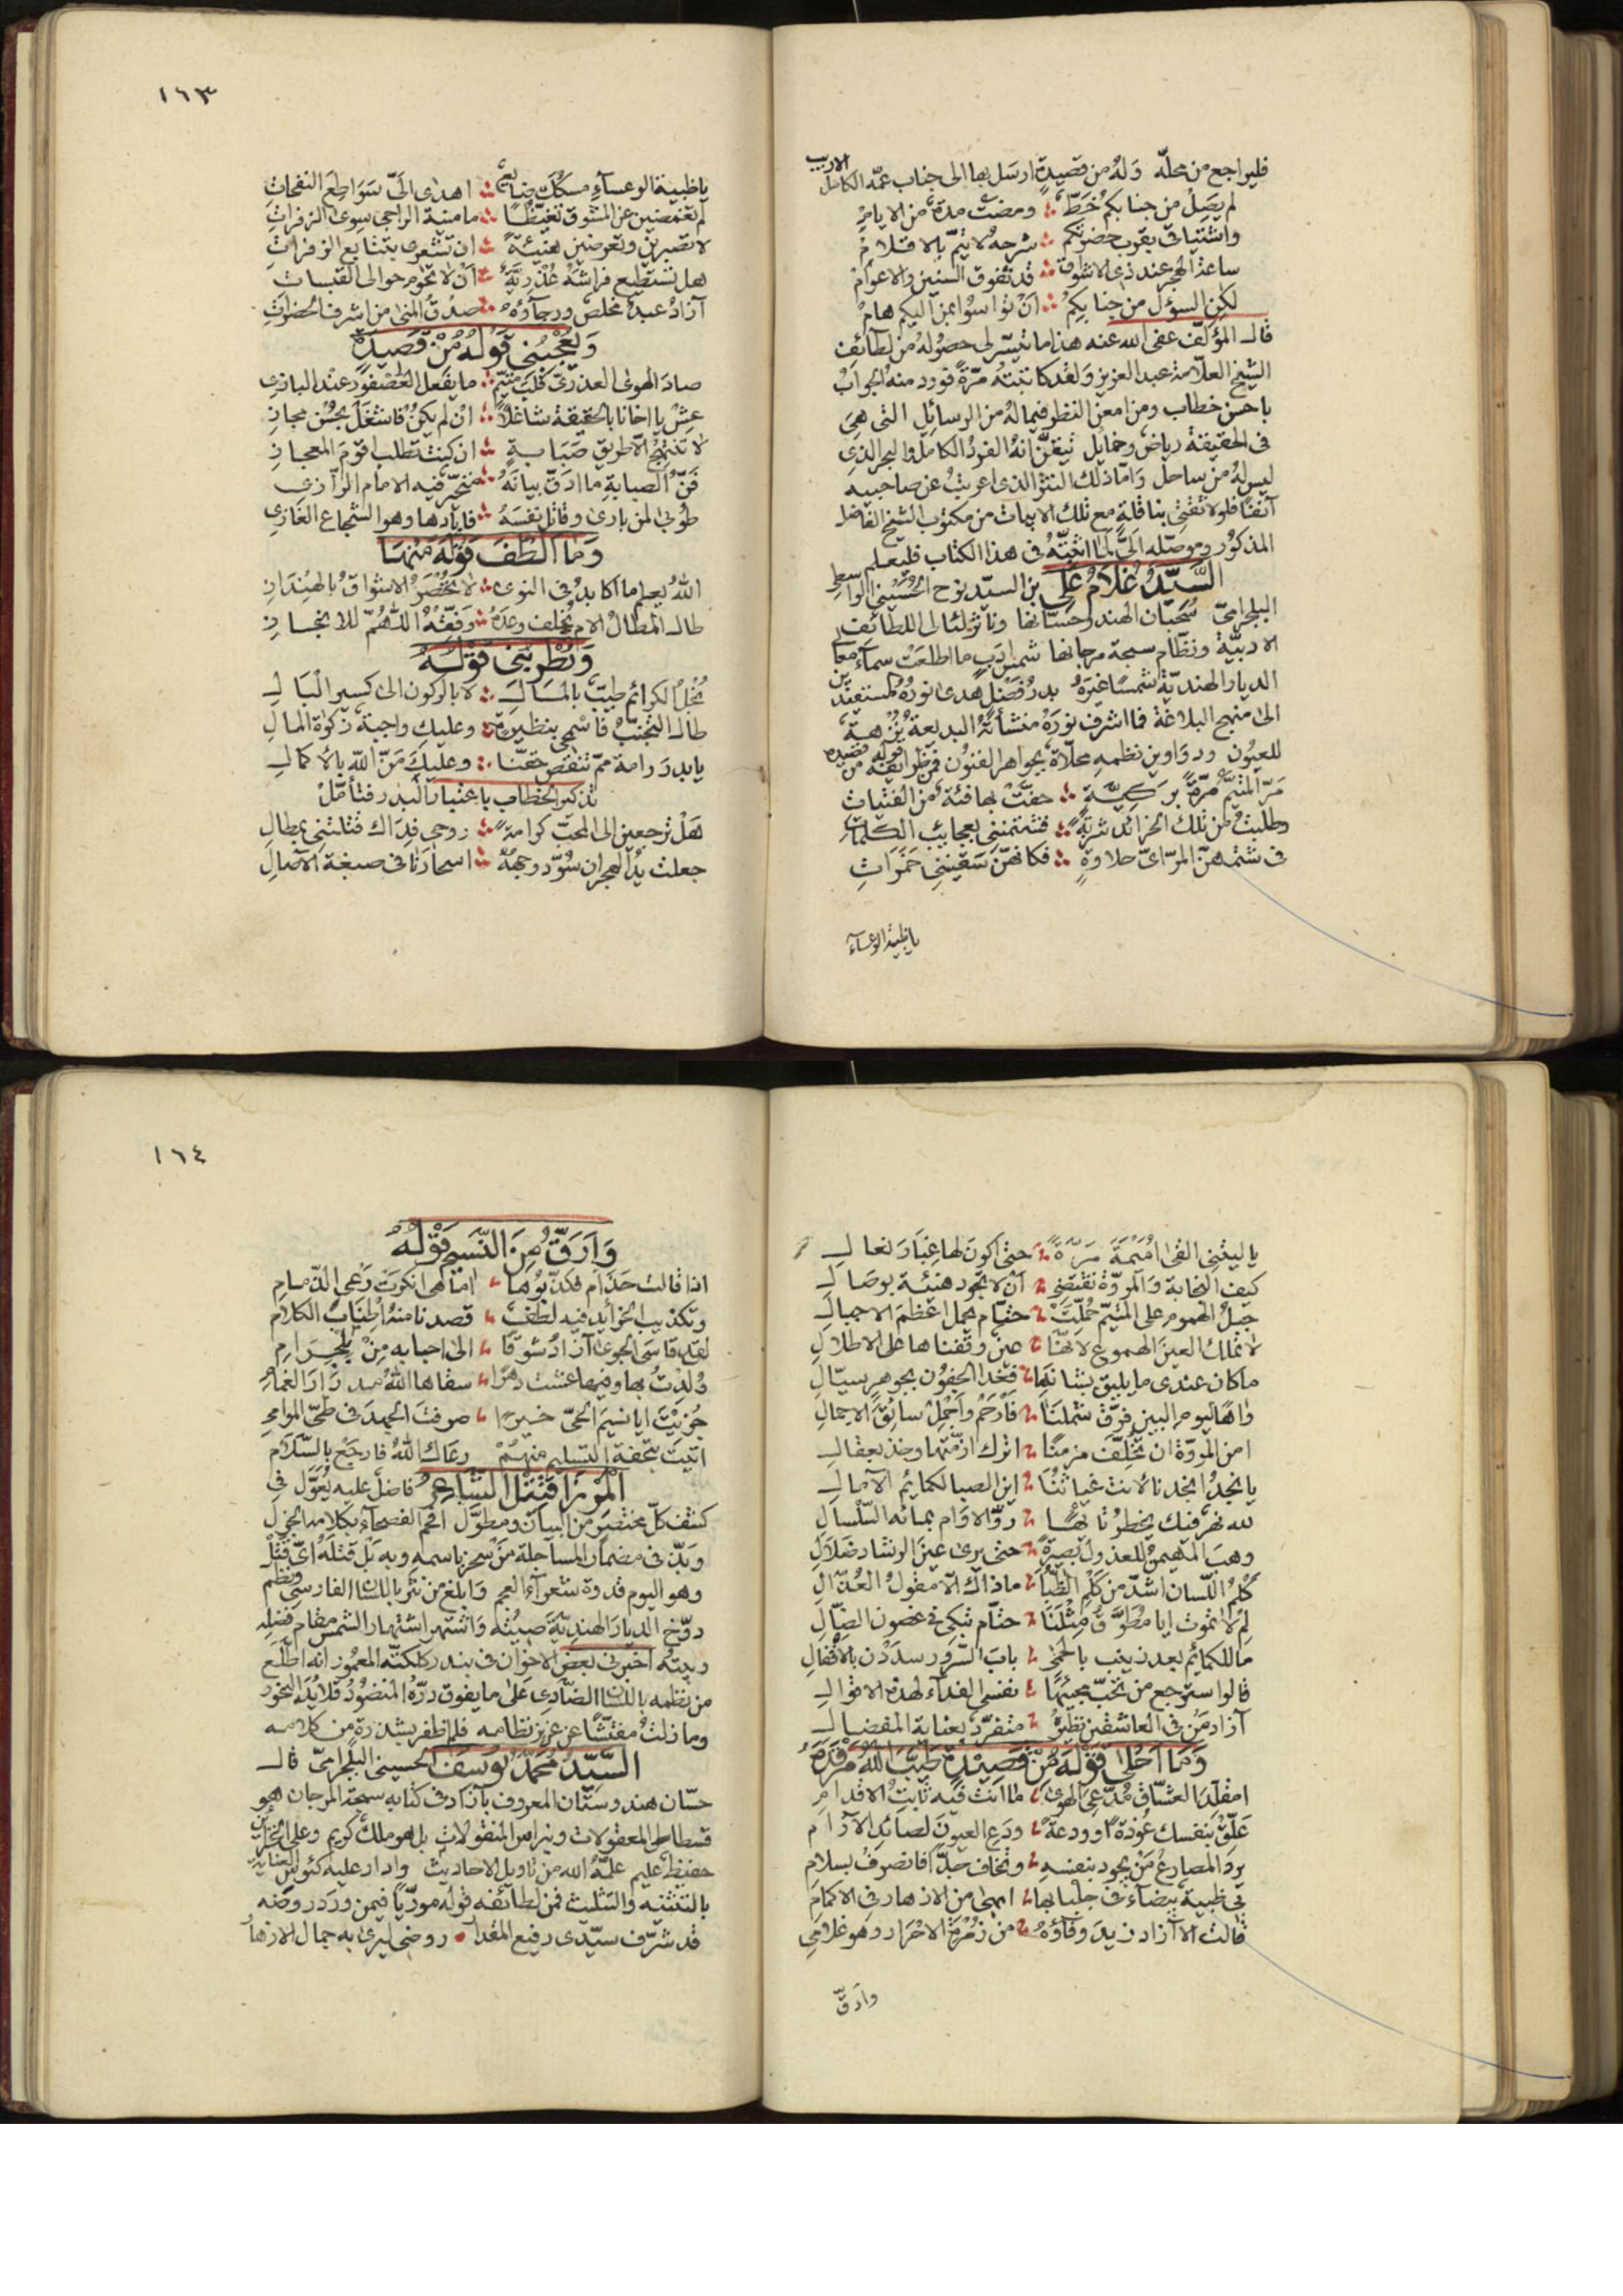 فليراجع من محله وله من قصيدة ارسل بها الى جناب عمه الكامل الاريب
لم يصل من جنابكم خط ؞ ومضت مدة من الايام
واشتياقي بقرب حضرتكم ؞ شرحه لا يتم بالاقلام
ساعة الهجر عند ذي الاشواق ؞ قد تفوق السنين والاعوام
لكن السؤل من جنابكم ؞ ان تواسوا بمن اليكم هام
قال المؤلف عفى الله عنه هذا ما تيسر لي حصوله من لطائف
الشيخ العلامة عبد العزيز ولقد كاتبته مرة فورد منه الجواب
باحسن خطاب ومن امعن النظر فيما له من الرسائل التي هي
في الحقيقة رياض وخمايل تيقن انه الفرد الكامل والبحر الذي
ليس له من ساحل واما ذلك النثر الذي اعربت عن صاحبيه
آنفا فلولا ثقتي بناقله مع تلك الابيات من مكتوب الشيخ الفاضل
المذكور وموصله الي لما اثبته في هذا الكتاب فليعلم
السيد غلام علي بن السيد نوح الحسيني الواسطي
البلجرامي سحبان الهند وحسانها وناثر لئالى اللطائف
الادبية ونظام سبحة مرجانها شمس ادب ما اطلعت سماء معا
الديار الهندية شمسا غيره بدر فضل هدى نوره المستعبدين
الى منهج البلاغة فما اشرف نوره منشأته البديعة نزهة
للعيون ودواوين نظمه محلاة بجواهر الفنون فمن ظرايفه قوله من قصيدة
مر المتيم مرة بركية ؞ حفت بها فئة من الفتيات
وطلبت من تلك الخرائد شربة ؞ فشتمنني بعجايب الكلمات
في شتمهن المر اي حلاوة ؞ فكانهن سقينني خمرات
يا ظبية الوعساء
١٦٣
يا ظبية الوعساء مسكك ضائع ؞ اهدى الي سواطع النفحات
لم تغمضين عن المشوق تغيظا ؞ ما منية الراجي سوى الزفرات
لا تصبرين وتعرضين هنيئة ؞ ان تشعري بتتابع الزفرات
هل تستطيع فراشة عذرية ؞ ان لا تحوم حوالى القبسات
آزاد عبد مخلص ورجاؤه ؞ صدق المنى من اشرف الحضرات
ويعجبني قوله من قصيدة
صاد الهوى العذري قلب متيم ؞ ما يفعل العصفور عند البازي
عش يا اخانا بالحقيقة شاغلا ؞ ان لم يكن فاشتغل بحسن مجاز
لا تنتهج الا طريق صبابة ؞ ان كنت تطلب اقوم المعجاز
فن الصبابة ما ادق بيانه ؞ متحير فيه الامام الرازي
طوبى لمن بارى وقاتل نفسه ؞ فابادها وهو الشجاع الغازي
وما الطف قوله منها
الله يعلم ما اكابد في النوى ؞ لا تحصر الاشواق بالهنداز
طال المطال الام يخلف وعده ؞ وفقه اللهم للانجاز
ويطربني قوله
بخل الكرائم طيب بالمال ؞ لا بالركون الى كسير البال
طال التجنب فاسمحي بنظيرة ؞ وعليك واجبة زكوة المال
يا بدر رامة مم تنقص حقنا ؞ وعليك من الله بالاكمال
تذكير الخطاب باعتبار البدر فتأمل
هل ترجعين الى المحب كرامة ؞ روحي فداك قتلتني بمطال
جعلت يد الهجران سود وجهه ؞ اسحارنا في صبغة الآصال
يا ليتني القى اميمة مرة ؞ حتى اكون لها غبار نعال
كيف النجابة والمروة تقتضي ؞ ان لا تجود هنيئة بوصال
جبل الهموم على المتيم حملت ؞ حتام يحمل اعظم الاجبال
لا تملك العين الهموع لانها ؞ عين وقفناها على الاطلال
ما كان عندي ما يليق بشانها ؞ فغدا الجفون بجوهر سيال
واها ليوم البين فرق شملنا ؞ فارحم واجمل سائق الاجمال
امن المروة ان تخلف مزمنا ؞ اترك ازمتها وخذ بعقال
يا نجد انجدنا لانت غياثنا ؞ اين الصبا لكمايم الآمال
لله نهر فيك يخطر تائها ؞ رد الاوام بمائه السلسال
وهب المهيمن للعذول بصيرة ؞ حتى يرى عين الرشاد ضلال
كلم اللسان اشد من كلم الظبا ؞ ما ذاك الا مقول العذال
لم لا تموت ايا مطوق مثلنا ؞ حتام تبكي في غصون الضال
ما للكمائم بعد زينب بالحمى ؞ باب السرور سددن بالاقفال
قالوا سترجع من تحب مجيئها ؞ نفسي الفداء لهذه الاقوال
آزاد من في العاشقين نظيره ؞ متفرد بعناية المفضال
وما احلى قوله من قصيدة طيب الله مرقده
امقلد العشاق مدعي الهوى ؞ ما انت فيه ثابت الاقدام
علق بنفسك عوذة او ودعة ؞ ودع العيون لصائد الآرام
يرد المصارع من يجود بنفسه ؞ وتخاف جدا فانصرف بسلام
بي ظبية بيضاء في جلبابها ؞ ابهى من الازهار في الاكمام
قالت الا آزاد زيد وفاؤه ؞ من زمرة الاحرار وهو غلامي
وارق
١٦٤
وارق من النسيم قوله
اذا قالت حذام فكذبوها ؞ اما هي انكرت رعي الذمام
وتكذيب الخرائد فيه لطف ؞ قصدنا منه اطناب الكلام
لقد قاسى الجوى آزاد شوقا ؞ الى احبابه من بلجرام
ولدت بها وفيها عشت دهرا ؞ سقاها الله مدرار الغمام
جزيت ايا نسيم الحي خيرا ؞ صرفت الجهد في طي الموامي
اتيت بتحفة التسليم منهم رعاك الله فارجع بالسلام
الميرزا قتيل الشاعر فاضل عليه يعول في
كشف كل مختصر من البيان ومطول افحم الفصحاء بكلامه الجزل
وبذ في مضمار المساجلة من سجز باسمه وبه بل قتله اي قتل
وهو اليوم قدوة شعراء العجم وابلغ من نثر باللسان الفارسي ونظم
دوخ الديار الهندية صيته واشتهر اشتهار الشمس مقام فضله
وبيته اخبرني بعض الاخوان في بندر كلكته المعمور انه اطلع
من نظمه باللسان الضادي على ما يفوق دره المنضود قلائد النحور
وما زلت مفتشا عن عزيز نظامه فلم اظفر بشذرة من كلامه
السيد محمد يوسف الحسيني البلجرامي قال
حسان هندوستان المعروف بآزاد في كتابه سبحة المرجان هو
قسطاس المعقولات ونبراس المنقولات بل هو ملك كريم وعلى الخزائن
حفيظ عليم علمه الله من تاويل الاحاديث وادار عليه كئوس العناية
بالتثنية والتثليث فمن لطائفه قوله موريا فيمن ورد روضه
قد شرف سيدي رفيع المقدار • روضي ليرى به جمال الازهار